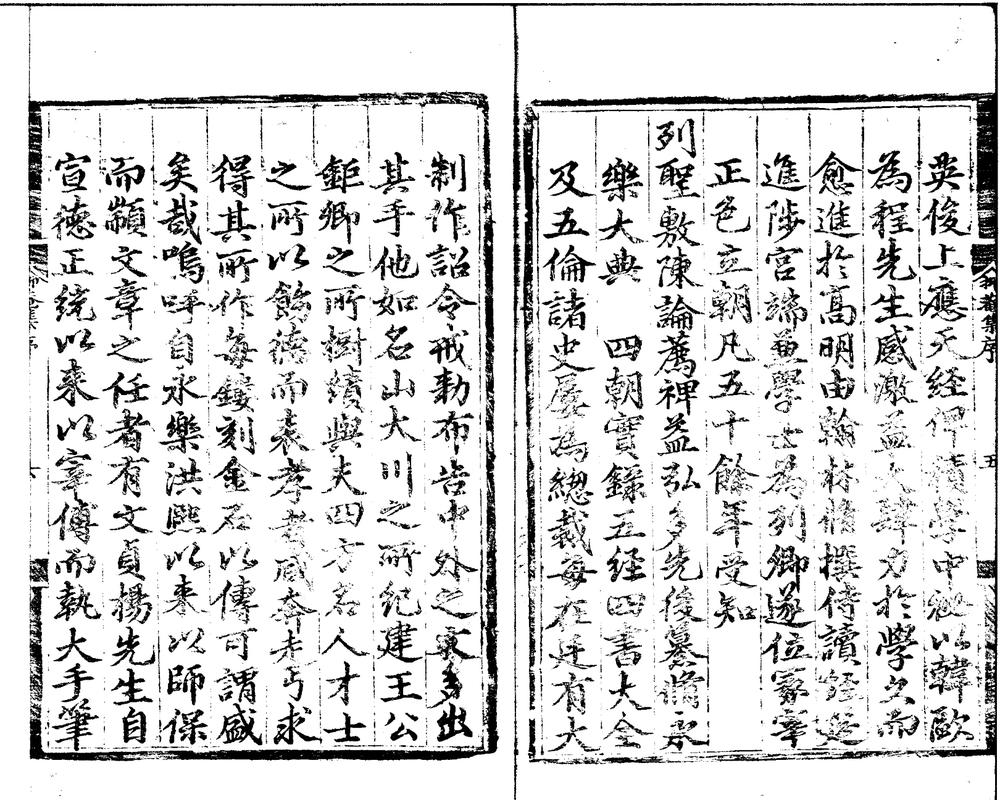 英俊上應天経俾積學中祕以韓歐
為程先生感激益大肆力於學久而
愈進於髙明由翰林脩撰侍讀經筵
進陟宫端並學士為列卿遂位冡宰
正色立朝凡五十餘年受知
列聖敷陳論薦裨益弘多先後纂脩永
樂大典 四朝實録五経四書大全
及五倫諸史屡為緫裁每在廷有大
制作詔令戒勑布告中外之文多出
其手他如名山大川之所紀建王公
鉅卿之所樹績與夫四方名人才士
之所以飾德而表孝者咸奔走丐求
得其所作每鏤刻金石以傳可謂盛
矣哉嗚呼自永樂洪熙以来以師保
而顓文章之任者有文貞楊先生自
宣德正統以来以宰傅而執大手筆
五